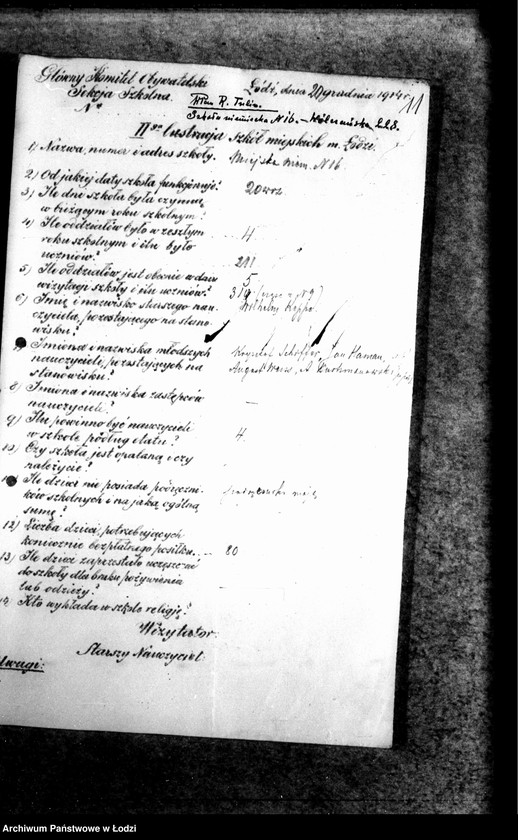 Główny Komitet Obywatelski
Sekcja Szkolna.
Łódź, dnia 20 grudnia 1914 r.
11
No
Szkoła niemiecka N 16. –
IIga lustracja szkół miejskich m. Łodzi.
1) Nazwa, numer i adres szkoły. Miejska niem. N 16.
2) Od jakiej daty szkoła funkcjonuje? 20
3) Ile dni szkoła była czynną
w bieżącym roku szkolnym?
4) Ile oddziałów było w zeszłym 4
roku szkolnym i ilu było
uczniów? 211
5) Ile oddziałów jest obecnie w dniu 5
wizytacji szkoły i ilu uczniów?
6) Imię i nazwisko starszego nau-
czyciela, pozostającego na stano-
wisku?
7) Imiona i nazwiska młodszych
nauczycieli, pozostających na
stanowisku? August
8) Imiona i nazwiska zastępców
nauczycieli? —
9) Ilu powinno być nauczycieli
w szkole podług etatu? 4.
10) Czy szkoła jest opalaną i czy
należycie?
11) Ile dzieci nie posiada podręczni-
ków szkolnych i na jaką ogólną
sumę?
12) Liczba dzieci, potrzebujących
koniecznie bezpłatnego posiłku. 80
13) Ile dzieci zaprzestało uczęszczać
do szkoły dla braku pożywienia
lub odzieży?
14) Kto wykłada w szkole religję?
Wizytator:
Starszy Nauczyciel:
Uwagi:
Archiwum Państwowe w Łodzi